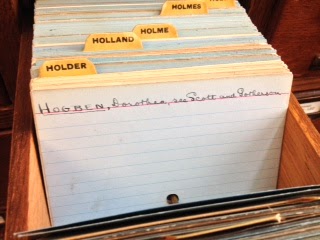 HOLMES
HOLLAND HOLME
HOLDER
HOGBEN, Dorothea, see Scott and Gotherson